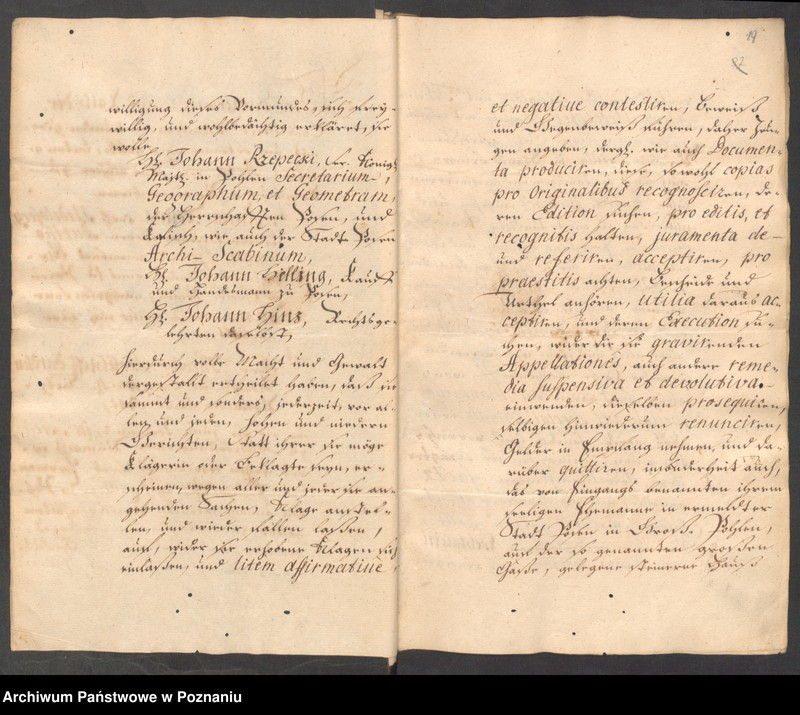 willigung dieses Vormundes, sich frey-
willig, und wohlbedächtig erkläret, sie
wolle
H: Johann Rzepecki, Sr. Königl:
Maytt. in Pohlen Secretarium,
Geographum, et Geometram,
der Herrschafften Posen, und
Kalisch, wie auch der Stadt Posen
Archi-Scabinum,
H: Johann Hilling, Kauff
und Handelsmann zu Posen,
H: Johann Hins, Rechtsge-
lehrten daselbst,
hierdurch volle Macht und Gewalt
dergestalt ertheilet haben, daß sie
sammt und sonders, jederzeit, vor al-
len, und jeden, hohen und niedern
Gerichten, statt ihrer sie möge
Klägerin oder Beklagte seyn, er-
scheinen, wegen aller und jeder sie an-
gehenden Sachen, Klage anstel-
len, und wieder fallen laßen,
auch, wider sie erhobene Klagen sich
einlaßen, und litem affirmative,
19
et negatiue contestiren, Beweiß
und Gegenbeweiß führen, daher Zeu-
gen angeben, dergl. wie auch Documen-
ta produciren, diese, sowohl copias
pro Originalibus recognosciren, de-
ren Edition suchen, pro editis, et
recognitis halten, juramenta de-
und referiren, acceptiren, pro
praestitis achten, Bescheide und
Urthel anhören, utilia daraus ac-
ceptiren, und deren Execution su-
chen, wider die sie gravirenden
Appellationes, auch andere reme-
dia suspensiva et devolutiva
einwenden, dieselben prosequiren,
selbigen hinwiederum renunciren,
Gelder in Empfang nehmen, und da-
rüber quittiren, insonderheit auch,
das von Eingangs benannten ihrem
seeligen Ehemanne in ermeldter
Stadt Posen in Groß-Pohlen,
auf der so genannten großen
Gaße, gelegene steinerne Hauß
Archiwum Państwowe w Poznaniu